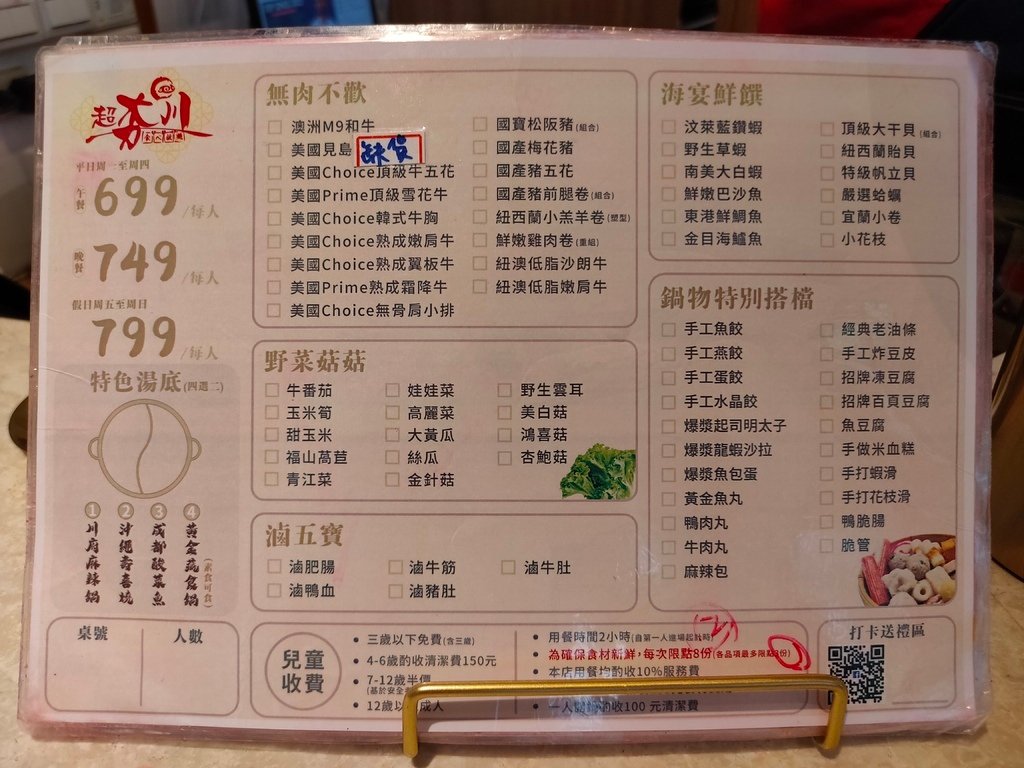 超夯川
平日周一至周四
午餐 699 /每人
晚餐 749 /每人
假日周五至周日
799 /每人
特色湯底(四選二)
1 川府麻辣鍋
2 沖繩壽喜燒
3 成都酸菜魚
4 黃金蔬食鍋(素食可食)
桌號
人數
無肉不歡
澳洲M9和牛
美國見島
缺貨
美國Choice頂級牛五花
美國Prime頂級雪花牛
美國Choice韓式牛胸
美國Choice熟成嫩肩牛
美國Choice熟成翼板牛
美國Prime熟成霜降牛
美國Choice無骨肩小排
國寶松阪豬(組合)
國產梅花豬
國產豬五花
國產豬前腿卷(組合)
紐西蘭小羔羊卷(塑型)
鮮嫩雞肉卷(重組)
紐澳低脂沙朗牛
紐澳低脂嫩肩牛
野菜菇菇
牛番茄
玉米筍
甜玉米
福山萵苣
青江菜
娃娃菜
高麗菜
大黃瓜
絲瓜
金針菇
野生雲耳
美白菇
鴻喜菇
杏鮑菇
滷五寶
滷肥腸
滷鴨血
滷牛筋
滷豬肚
滷牛肚
海宴鮮饌
汶萊藍鑽蝦
野生草蝦
南美大白蝦
鮮嫩巴沙魚
東港鮮鯛魚
金目海鱸魚
頂級大干貝(組合)
紐西蘭貽貝
特級帆立貝
嚴選蛤蠣
宜蘭小卷
小花枝
鍋物特別搭檔
手工魚餃
手工燕餃
手工蛋餃
手工水晶餃
爆漿起司明太子
爆漿龍蝦沙拉
爆漿魚包蛋
黃金魚丸
鴨肉丸
牛肉丸
麻辣包
經典老油條
手工炸豆皮
招牌凍豆腐
招牌百頁豆腐
魚豆腐
手做米血糕
手打蝦滑
手打花枝滑
鴨脆腸
脆管
兒童收費
三歲以下免費(含三歲)
4-6歲酌收清潔費150元
7-12歲半價
(基於安全
12歲以 成人
用餐時間2小時(自第一人進場起計時)
為確保食材新鮮,每次限點8份(各品項最多限點 份)
本店用餐均酌收10%服務費
一人 酌收100 元清潔費
打卡送禮區